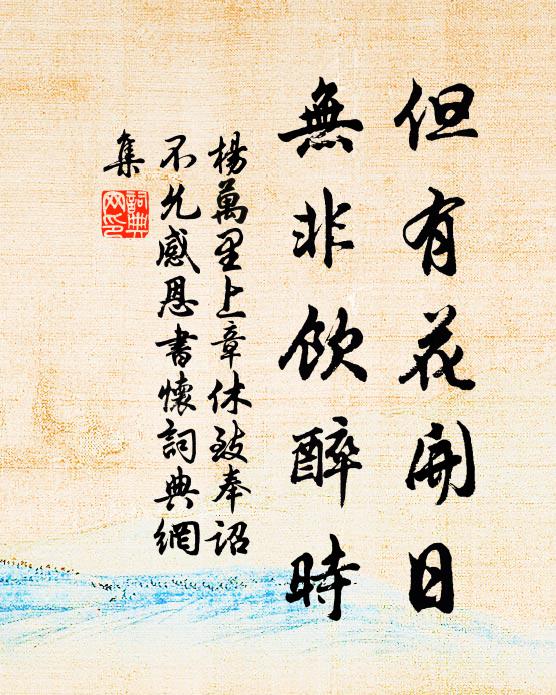 但有花開日
無非飲醉時
楊萬里上章休致奉詔
不允感恩書懷詞典網
集
詞典網印